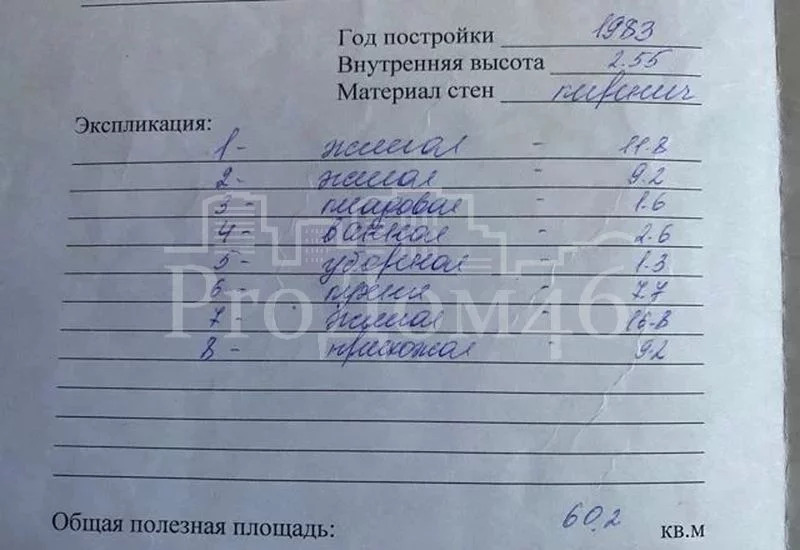 Год постройки 1983
Внутренняя высота 2.55
Материал стен кирпич
Экспликация:
1 - жилая - 11.8
2 - жилая - 9.2
3 - кладовая - 1.6
4 - ванная - 2.6
5 - уборная - 1.3
6 - кухня - 7.7
7 - жилая - 16.8
8 - прихожая - 9.2
ProДом46
Общая полезная площадь: 60,2 кв.м